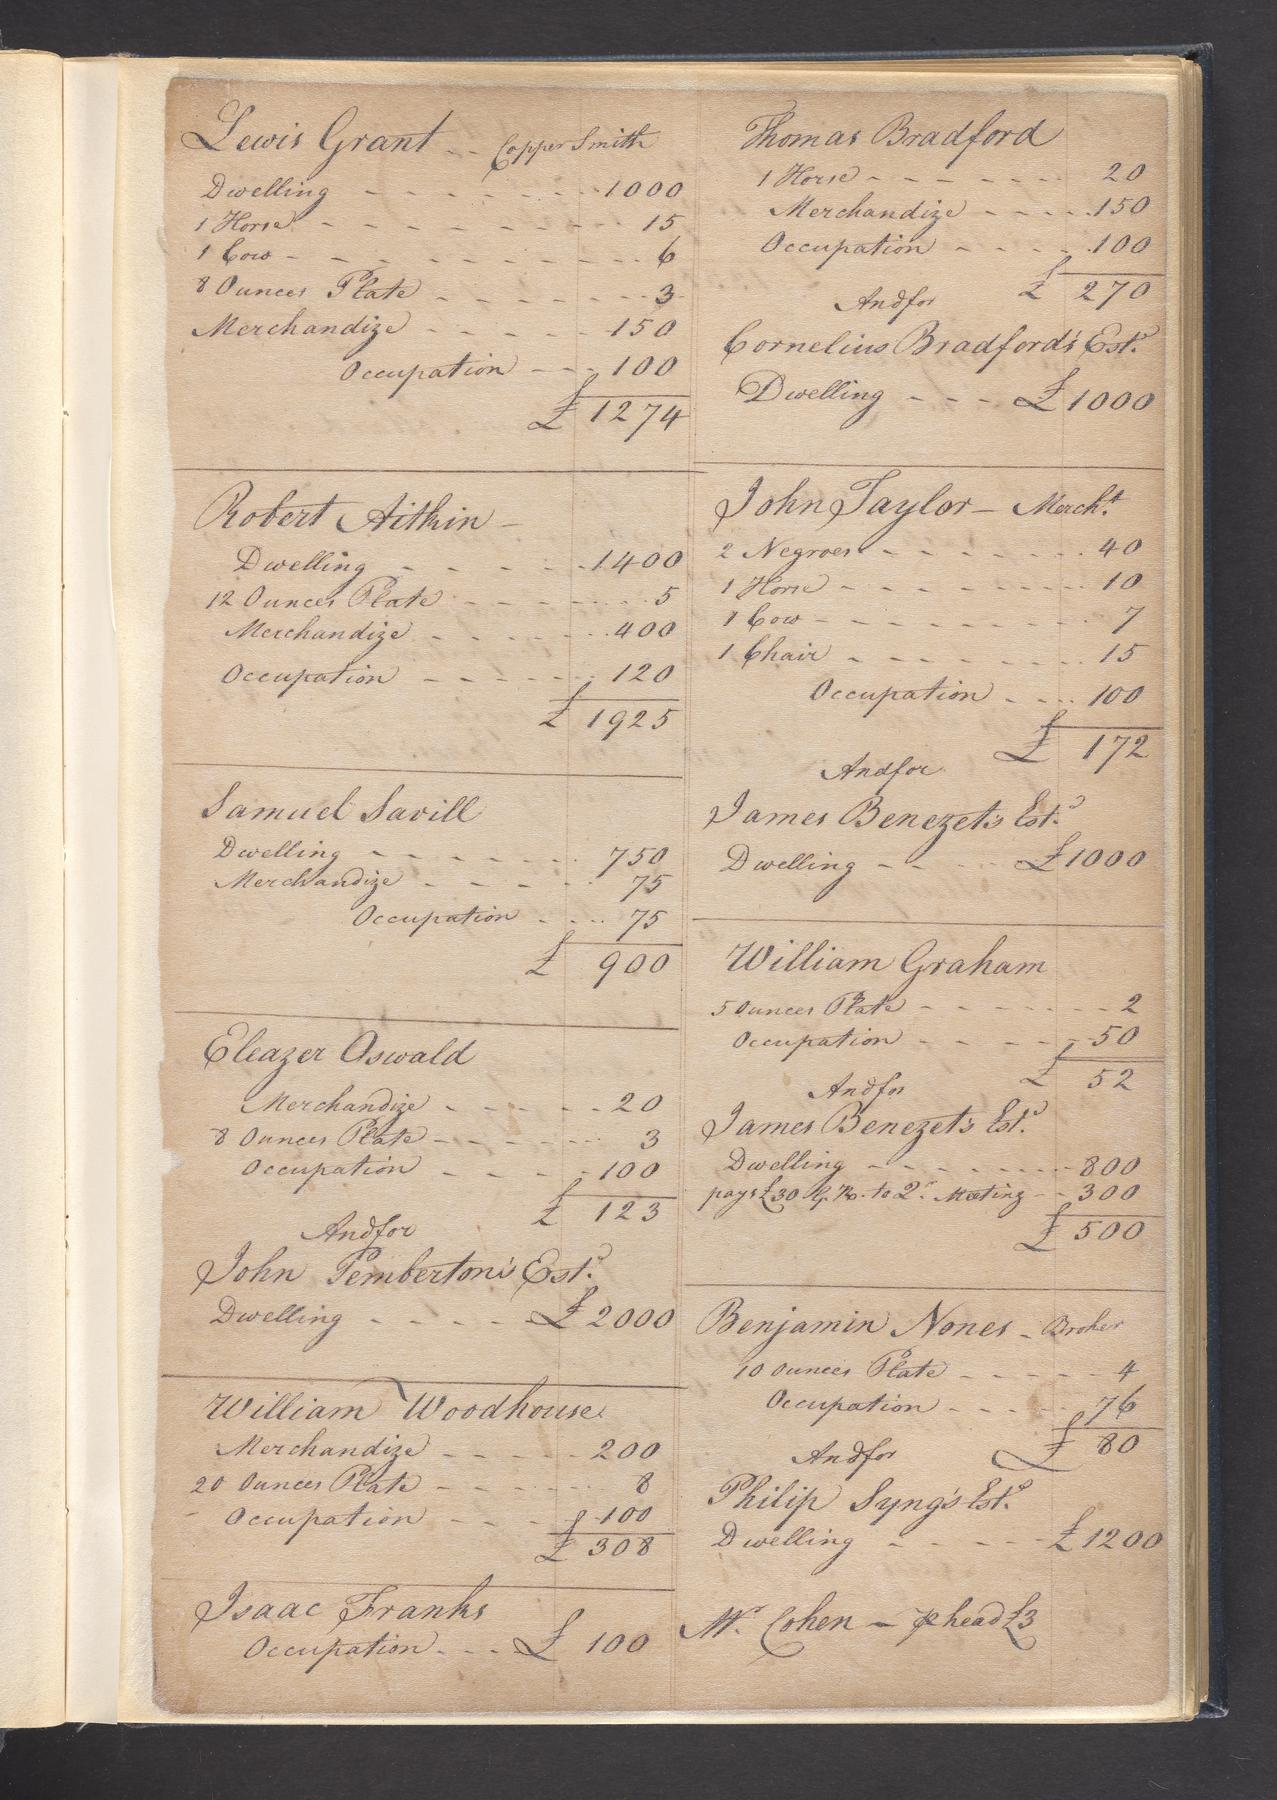 Lewis Grant -- Copper Smith
Dwelling - - - - - - - 1000
1 Horse - - - - - - - - 15
1 Cow - - - - - - - - - 6
8 Ounces Plate - - - - - - 3
Merchandize - - - - - 150
Occupation - - - 100
£ 1274
Robert Aitkin -
Dwelling - - - - - 1400
12 Ounces Plate - - - - - 5
Merchandize - - - - - 400
Occupation - - - - - 120
£ 1925
Samuel Savill
Dwelling - - - - - - 750
Merchandize - - - - 75
Occupation - - - 75
£ 900
Eleazer Oswald
Merchandize - - - - - 20
8 Ounces Plate - - - - - 3
Occupation - - - - - 100
£ 123
And for
John Pemberton's Estd.
Dwelling - - - - - £ 2000
William Woodhouse
Merchandize - - - - 200
20 Ounces Plate - - - - - 8
Occupation - - - - 100
£ 308
Isaac Franks
Occupation - - - £ 100
Thomas Bradford
1 Horse - - - - - - 20
Merchandize - - - - 150
Occupation - - - - 100
£ 270
And for
Cornelius Bradford's Estd.
Dwelling - - - £ 1000
John Taylor - Mercht.
2 Negroes - - - - - - 40
1 Horse - - - - - - - 10
1 Cow - - - - - - - - 7
1 Chair - - - - - - - 15
Occupation - - - 100
£ 172
And for
James Benezet's Estd.
Dwelling - - - £ 1000
William Graham
5 Ounces Plate - - - - - - 2
Occupation - - - - - 50
£ 52
And for
James Benezet's Estd.
Dwelling - - - - - - 800
pays £30 to 2r. Meeting - - 300
£ 500
Benjamin Nones - Broker
10 Ounces Plate - - - - - 4
Occupation - - - - 76
£ 80
And for
Philip Syng's Estd.
Dwelling - - - - £ 1200
Mr. Cohen - ⅌ head £3